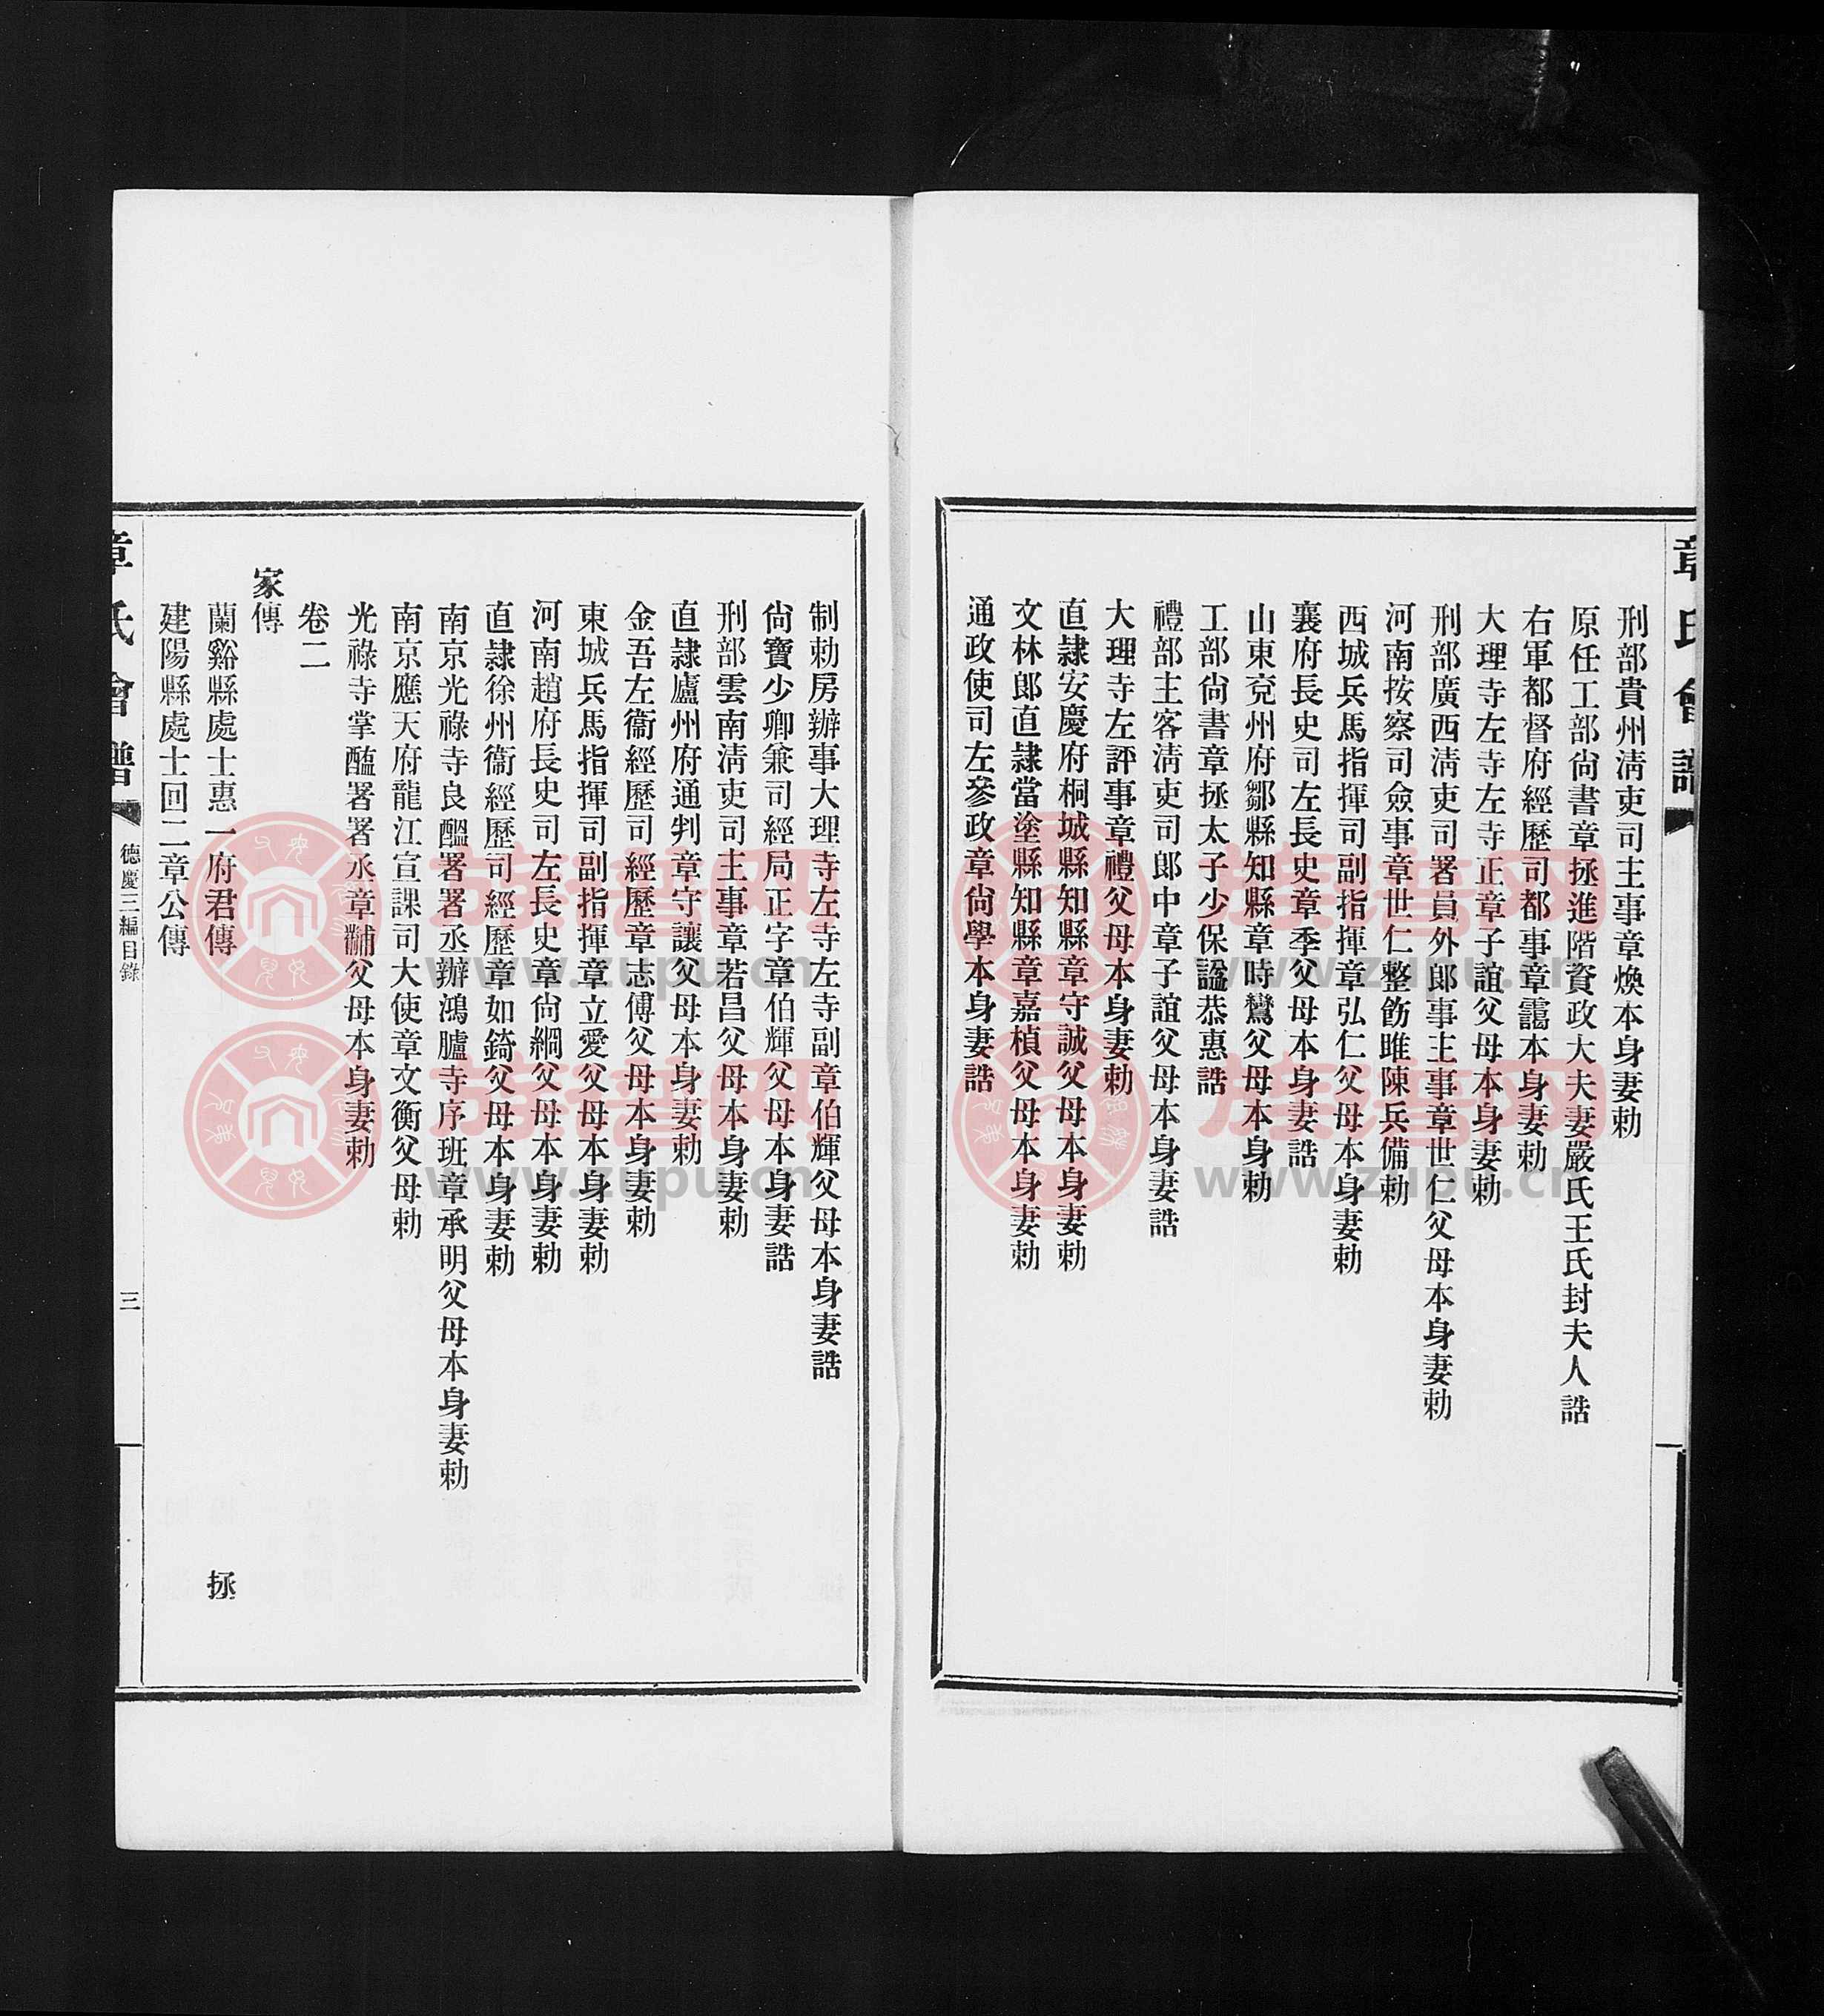 章氏會譜
刑部貴州淸吏司主事章煥本身妻勅
原任工部尙書章拯進階資政大夫妻嚴氏王氏封夫人誥
右軍都督府經歷司都事章靄本身妻勅
大理寺左寺左寺正章子誼父母本身妻勅
刑部廣西淸吏司署員外郞事主事章世仁父母本身妻勅
河南按察司僉事章世仁整飭睢陳兵備勅
西城兵馬指揮司副指揮章弘仁父母本身妻勅
襄府長史司左長史章季父母本身妻誥
山東兗州府鄒縣知縣章時鸞父母本身勅
工部尙書章拯太子少保諡恭惠誥
禮部主客淸吏司郞中章子誼父母本身妻誥
大理寺左評事章禮父母本身妻勅
直隷安慶府桐城縣知縣章守誠父母本身妻勅
文林郞直隷當塗縣知縣章嘉楨父母本身妻勅
通政使司左參政章尙學本身妻誥
制勅房辦事大理寺左寺左寺副章伯輝父母本身妻誥
尙寶少卿兼司經局正字章伯輝父母本身妻誥
刑部雲南淸吏司主事章若昌父母本身妻勅
直隷廬州府通判章守讓父母本身妻勅
金吾左衞經歷司經歷章志傅父母本身妻勅
東城兵馬指揮司副指揮章立愛父母本身妻勅
河南趙府長史司左長史章尙綱父母本身妻勅
直隷徐州衞經歷司經歷章如錡父母本身妻勅
南京光祿寺良醞署署丞辦鴻臚寺序班章承明父母本身妻勅
南京應天府龍江宣課司大使章文衡父母勅
光祿寺掌醢署署丞章黼父母本身妻勅
卷二
家傳
蘭谿縣處士惠一府君傳 拯
建陽縣處士回二章公傳
章氏會譜 德慶三編目錄 三
族譜网
www.zupu.cn
族譜网
www.zupu.cn
族譜网
www.zupu.cn
族譜网
www.zupu.cn